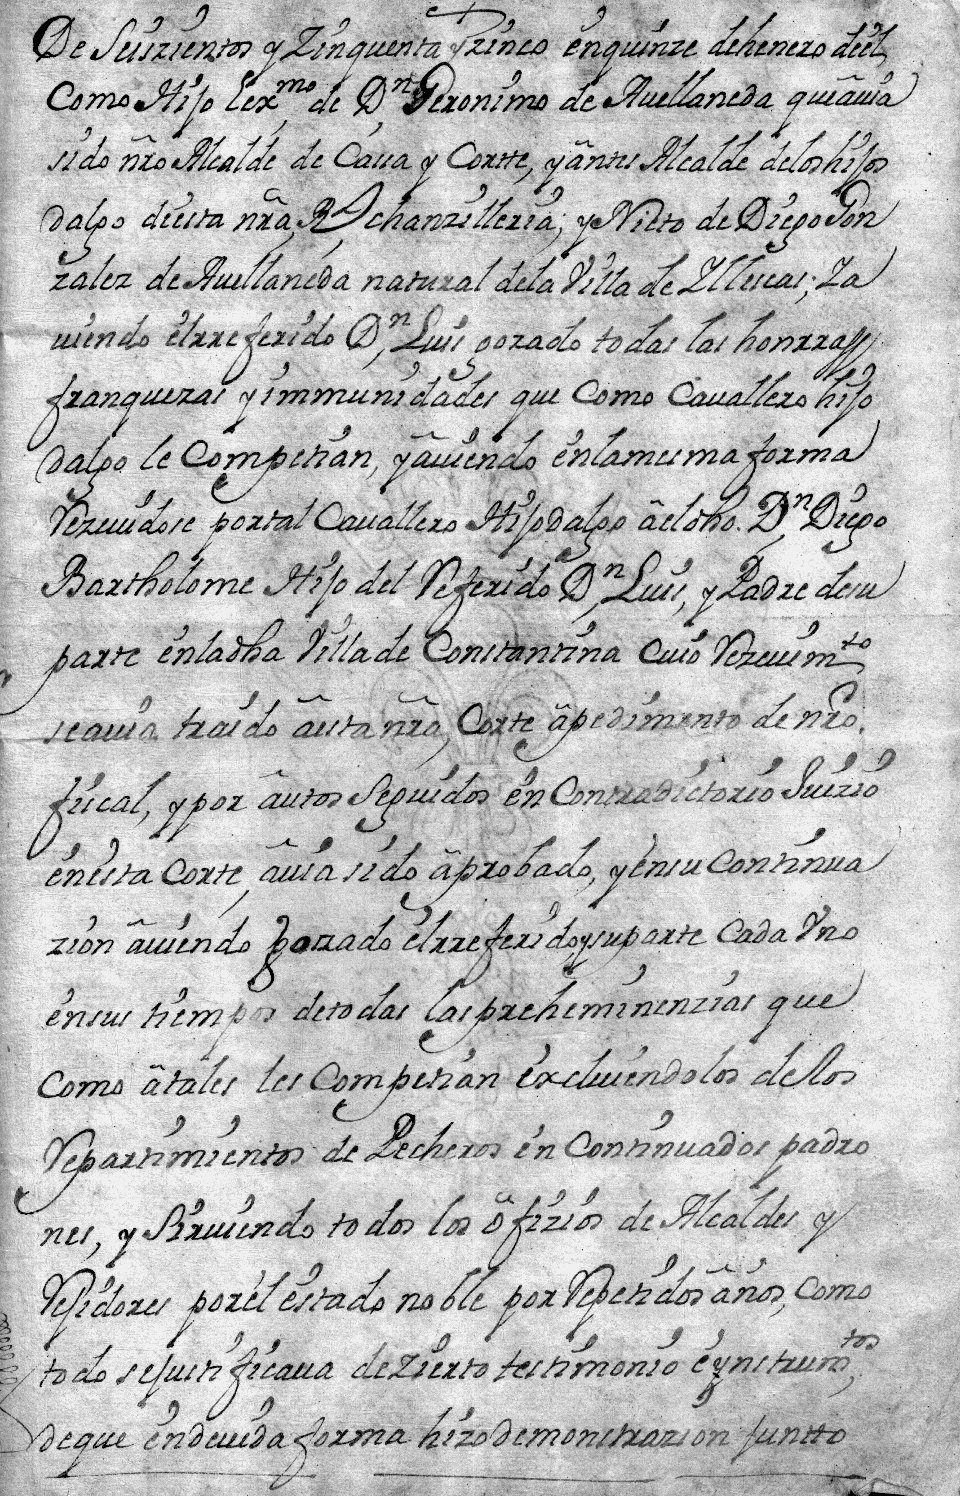 De Seiszientos y Zinquenta y zinco en quinze de henero deel,
como Hijo lexmo de Dn Geronimo de Avellaneda que avia
sido nro Alcalde de Cava y Corte, y antes Alcalde de los hijos
dalgo deesta nra Rl chanzilleria; y Nieto de Diego Gon
zalez de Avellaneda natural de la Villa de Yllescas; Ya
viendo elrreferido Dn Luis gozado todas las honrras,
franquezas y immunidades que como Cavallero hijo
dalgo le Competian, y aviendo en la mesma forma
Rezevidose por tal Cavallero Hijodalgo a el dho. Dn Diego
Bartholome Hijo del Referido Dn Luis, y Padre de su
parte en la dha Villa de Constantina cuio Rezevimto
se avia traido a esta nra Corte a pedimento de nro
fiscal, y por autos seguidos en Contradictorio Juizio
en esta Corte, avia sido aprobado, y en su Continua
zion aviendo gozado elrreferido, y su parte cada Vno
en sus tiempos de todas las preheminenzias que
como a tales les Competian excluiendolos de los
Repartimientos de Pecheros en Continuados padro
nes, y Sirviendo todos los ofizios de Alcaldes y
Rejidores por el estado noble por Repetidos años, como
todo se justificava de zierto testimonio e ynstrumtos
de que en devida forma hizo demonstrazion juntto